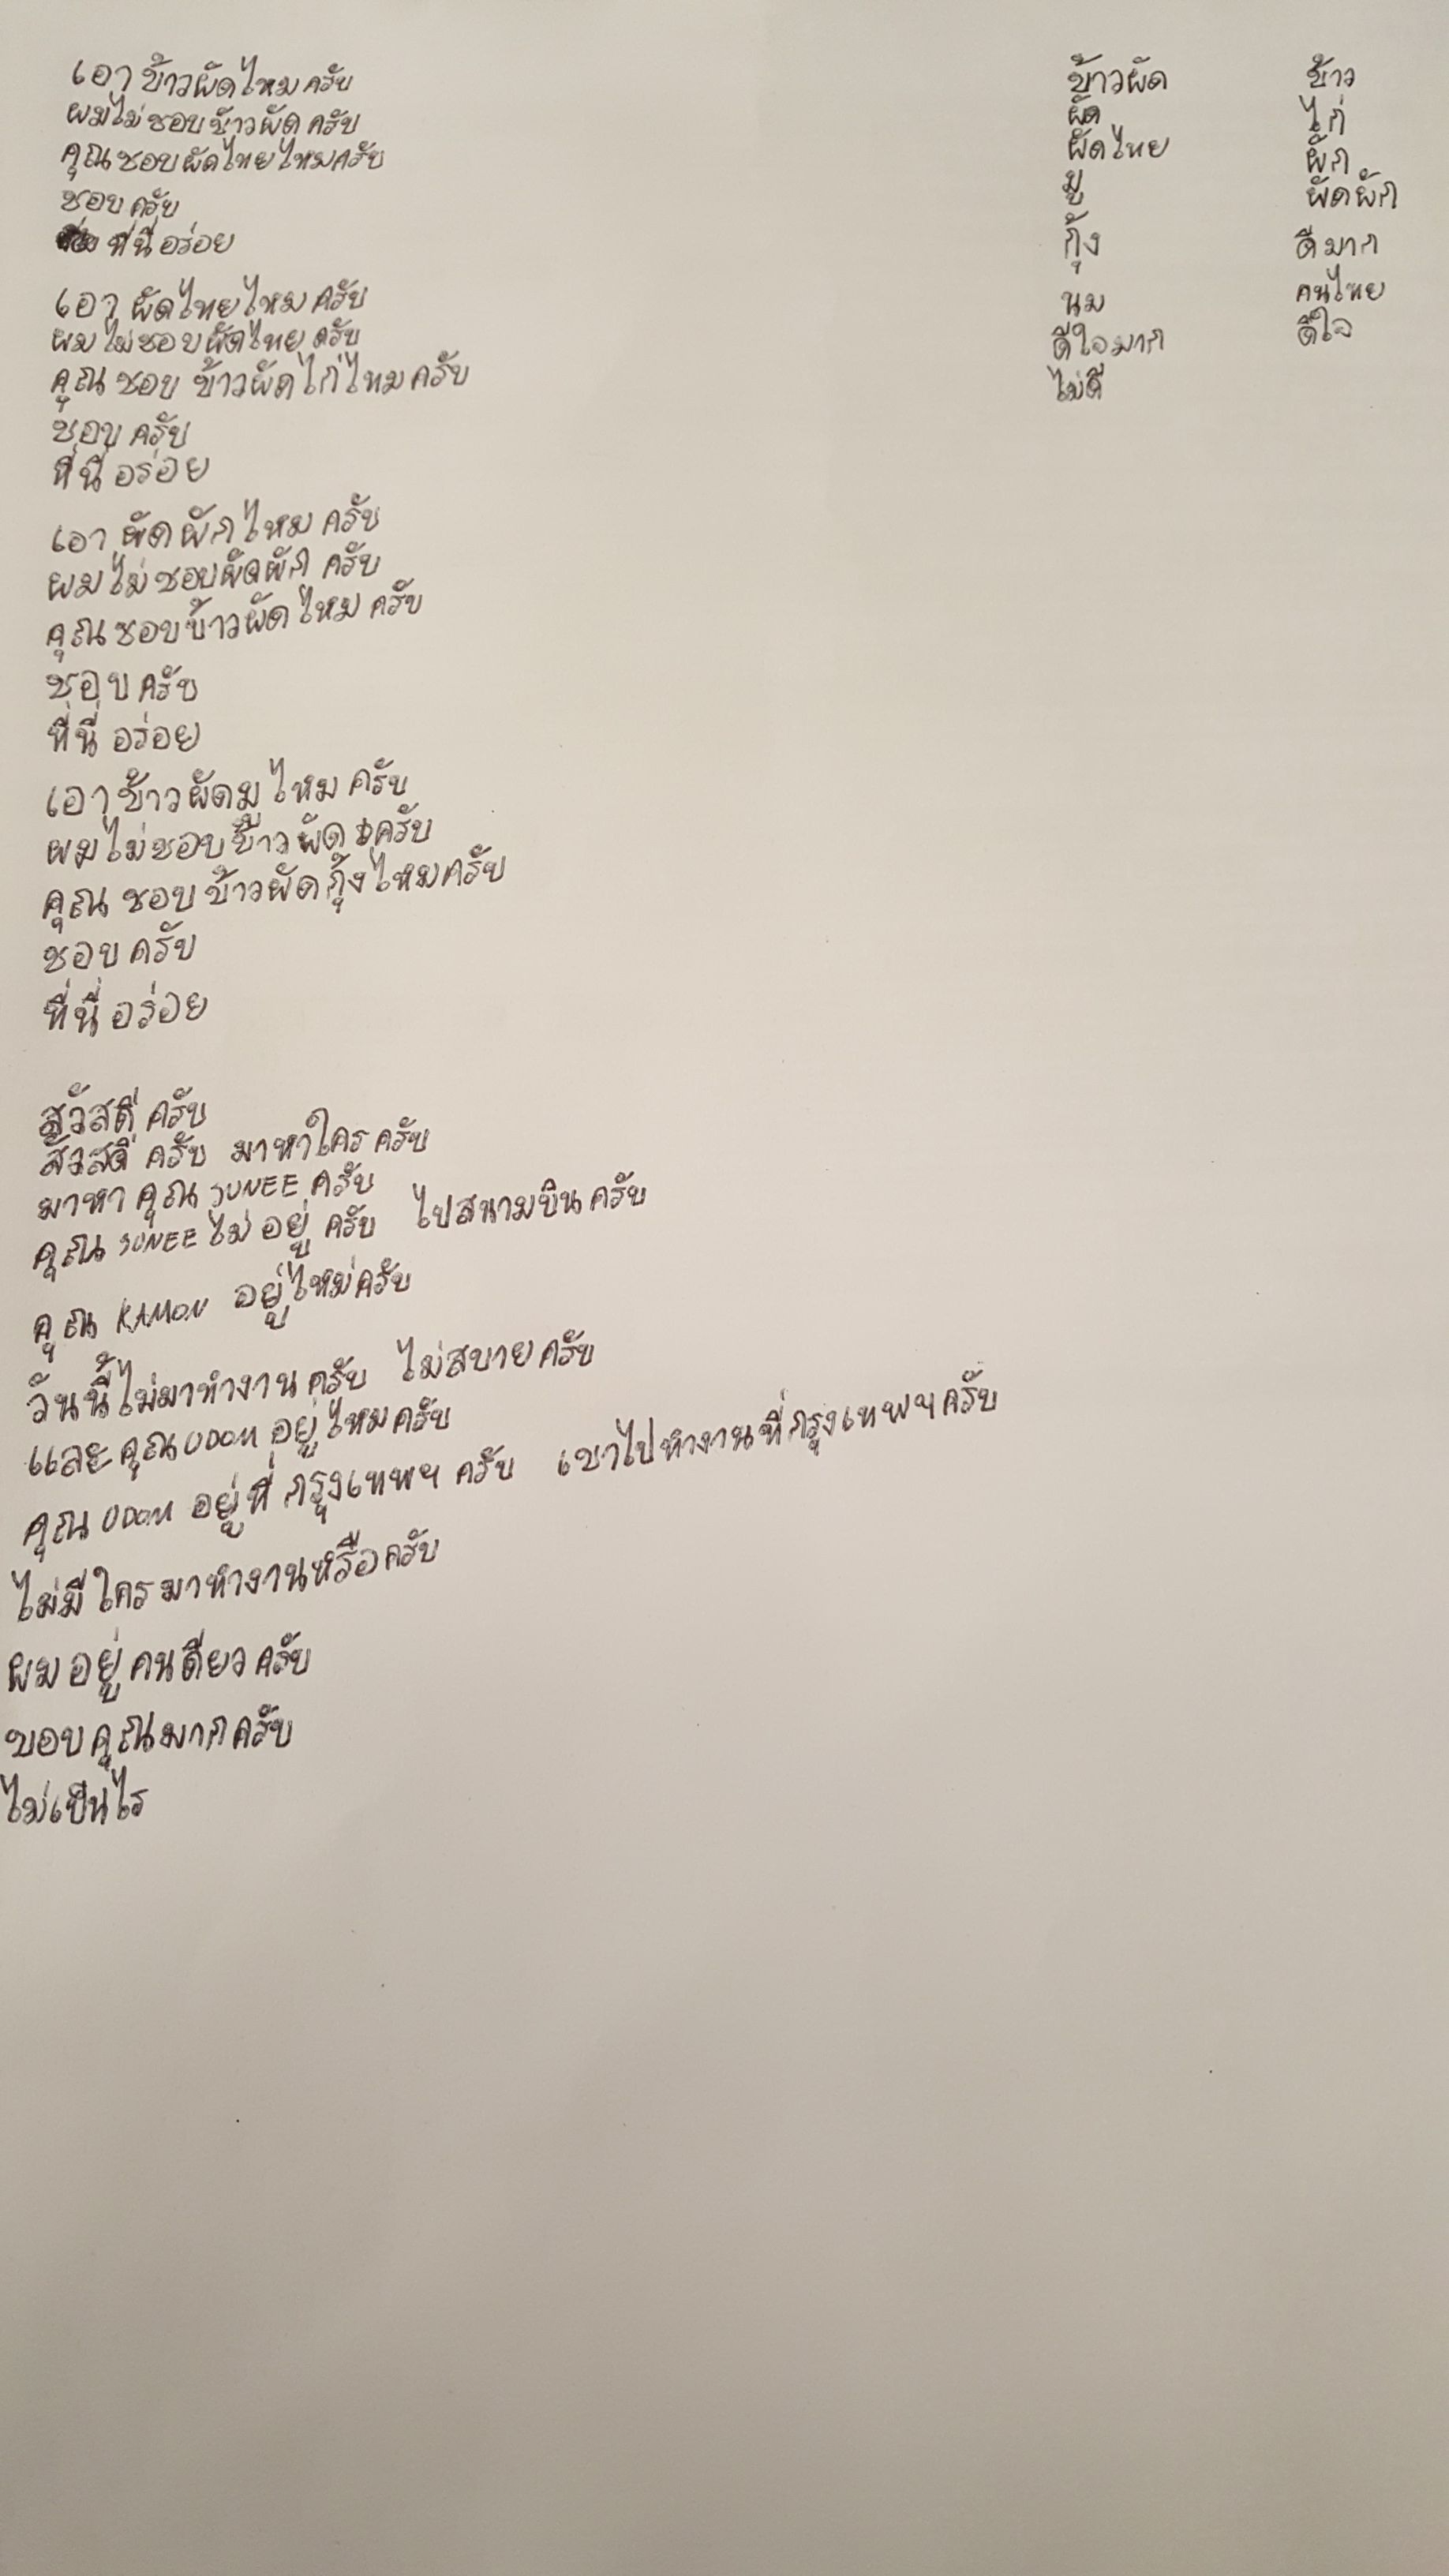 เอา ข้าวผัดไหม ครับ
ผมไม่ ชอบ ข้าวผัด ครับ
คุณ ชอบ ผัดไทยไหมครับ
ชอบ ครับ
ที่นี่ อร่อย
เอา ผัดไทยไหม ครับ
ผมไม่ ชอบผัดไทย ครับ
คูณ ชอบ ข้าวผัดไก่ไหม ครับ
ชอบ ครับ
ที่นี่ อร่อย
เอา ผัดผัก ไหม ครับ
ผมไม่ ชอบผัดผัก ครับ
คุณ ชอบข้าวผัด ไหม ครับ
ชอบ ครับ
ที่นี่ อร่อย
เอา ข้าวผัดมู ไหม ครับ
ผมไม่ชอบ ข้าวผัด ครับ
คุณ ชอบ ข้าวผัด กุ้ง ไหมครับ
ชอบ ครับ
ที่นี่ อร่อย
สวัสดี ครับ
สวัสดี ครับ มาหาใคร ครับ
มาหา คุณ SUNEE ครับ
คุณ SUNEE ไม่ อยู่ ครับ ไปสนามบิน ครับ
คุณ KAMON อยู่ไหม่ครับ
วันนี้ไม่มาทำงาน ครับ ไม่สบาย ครับ
และ คุณ UDOM อยู่ไหมครับ
คุณ UDOM อยู่ที่ กรุงเทพฯ ครับ เขาไปทำงานที่กรุงเทพฯครับ
ไม่มี ใคร มาทำงานหรือครับ
ผม อยู่ คนดียว ครับ
ขอบ คุณมากครับ
ไม่เป็นไร
ข้าวผัด ข้าว
ผัด ไก่
ผัดไทย ผัก
มู ผัดผัก
กุ้ง ดีมาก
นม คนไทย
ดีใจมาก ดีใจ
ไม่ดี